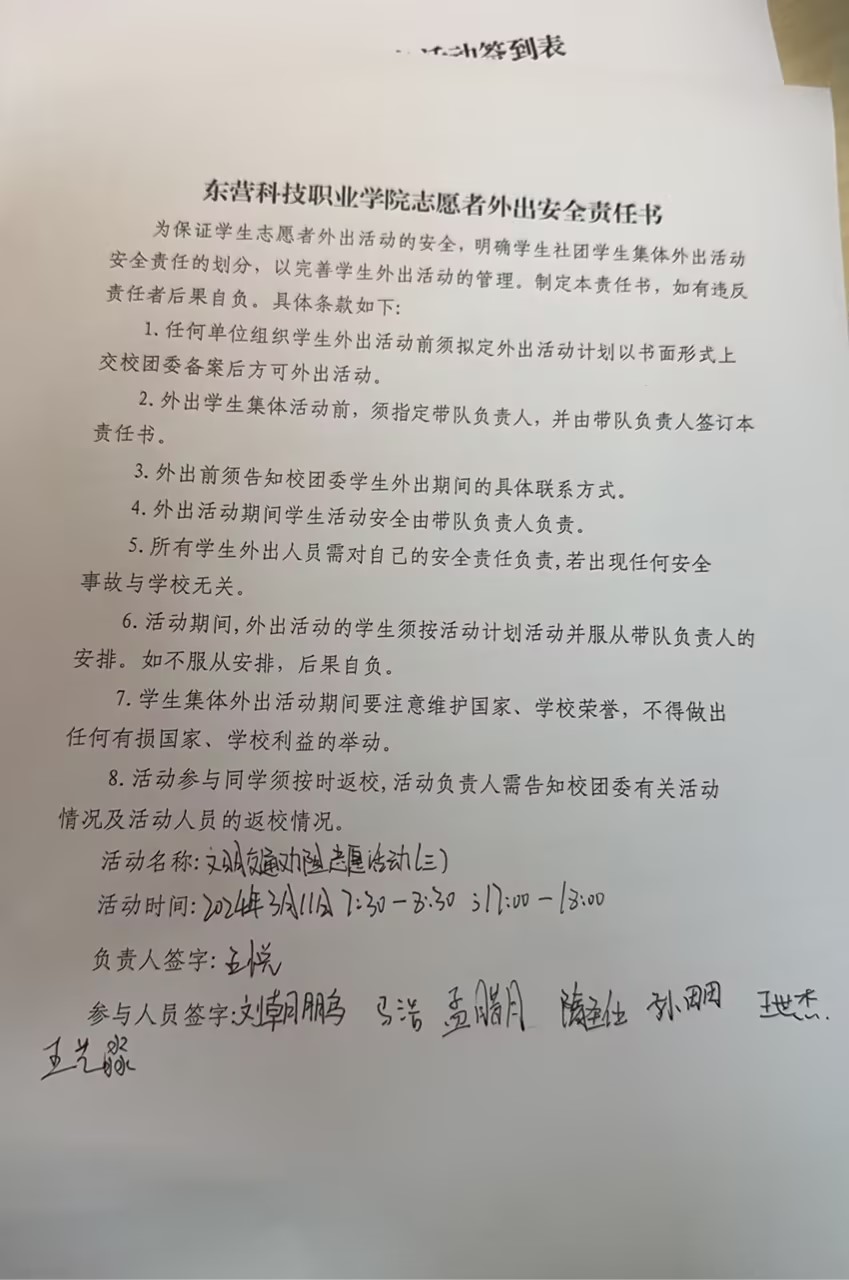 活动签到表
东营科技职业学院志愿者外出安全责任书
为保证学生志愿者外出活动的安全，明确学生社团学生集体外出活动
安全责任的划分，以完善学生外出活动的管理。制定本责任书，如有违反
责任者后果自负。具体条款如下：
1. 任何单位组织学生外出活动前须拟定外出活动计划以书面形式上
交校团委备案后方可外出活动。
2. 外出学生集体活动前，须指定带队负责人，并由带队负责人签订本
责任书。
3. 外出前须告知校团委学生外出期间的具体联系方式。
4. 外出活动期间学生活动安全由带队负责人负责。
5. 所有学生外出人员需对自己的安全责任负责,若出现任何安全
事故与学校无关。
6. 活动期间,外出活动的学生须按活动计划活动并服从带队负责人的
安排。如不服从安排，后果自负。
7. 学生集体外出活动期间要注意维护国家、学校荣誉，不得做出
任何有损国家、学校利益的举动。
8. 活动参与同学须按时返校,活动负责人需告知校团委有关活动
情况及活动人员的返校情况。
活动名称: 文明交通劝阻志愿活动(三)
活动时间: 2024年3月11日 7:30-8:30 ;17:00-18:00
负责人签字: 王悦
参与人员签字: 刘朝鹏 马浩 孟腊月 孙田田 王世杰.
王艺淼